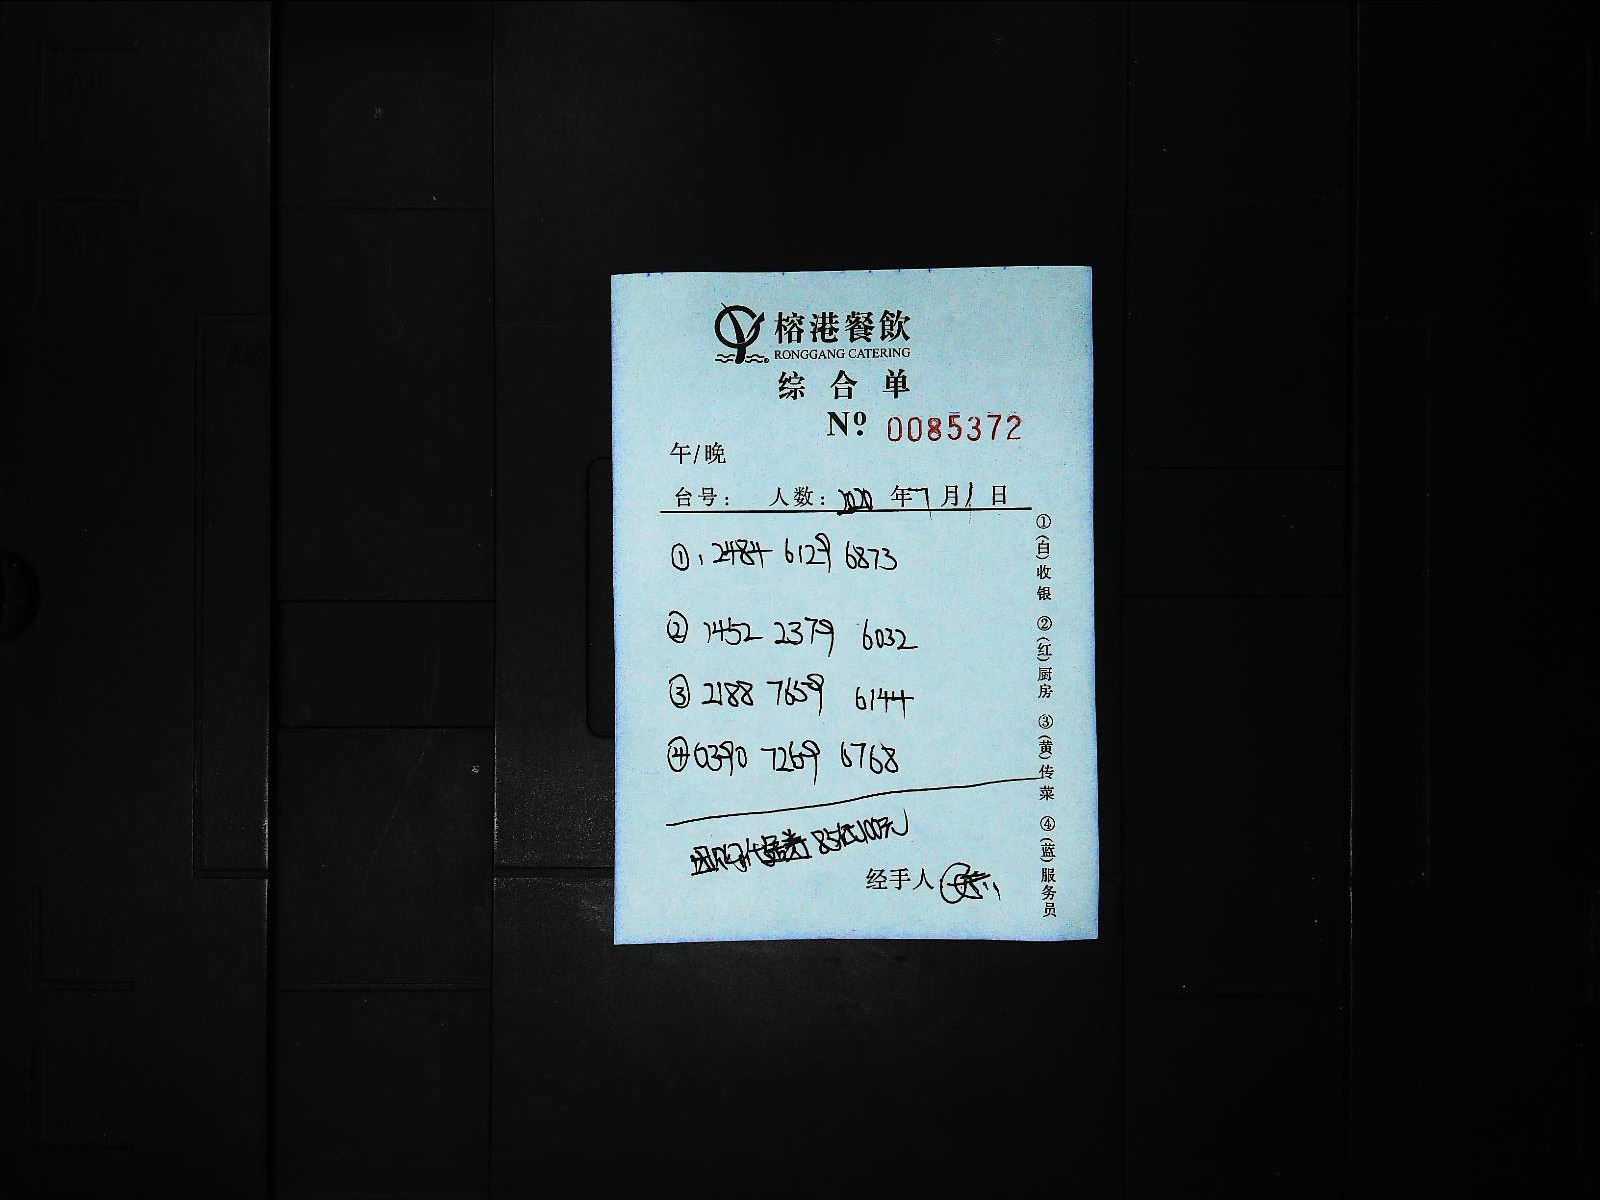 榕港餐飲
RONGGANG CATERING
综合单
Nº 0085372
午/晚
台号： 人数：2020 年7月1日
① 2484 6129 6873
② 1452 2379 6032
③ 2188 7659 6144
④ 0390 7269 6768
团购代金券 85抵100元
经手人
①(白)收银 ②(红)厨房 ③(黄)传菜 ④(蓝)服务员